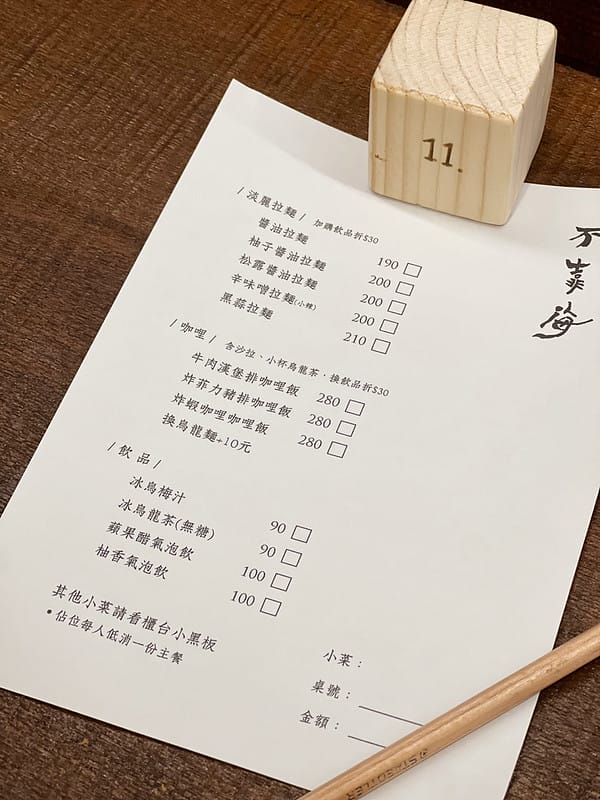 11.
不靠海
/ 淡麗拉麵 / 加購飲品折$30
醬油拉麵 190
柚子醬油拉麵 200
松露醬油拉麵 200
辛味噌拉麵(小辣) 200
黑蒜拉麵 210
/ 咖哩 / 含沙拉、小杯烏龍茶，換飲品折$30
牛肉漢堡排咖哩飯 280
炸菲力豬排咖哩飯 280
炸蝦咖哩咖哩飯 280
換烏龍麵+10元
/ 飲品 /
冰烏梅汁 90
冰烏龍茶(無糖) 90
蘋果醋氣泡飲 100
柚香氣泡飲 100
其他小菜請看櫃台小黑板
•佔位每人低消一份主餐
小菜：
桌號：
金額：